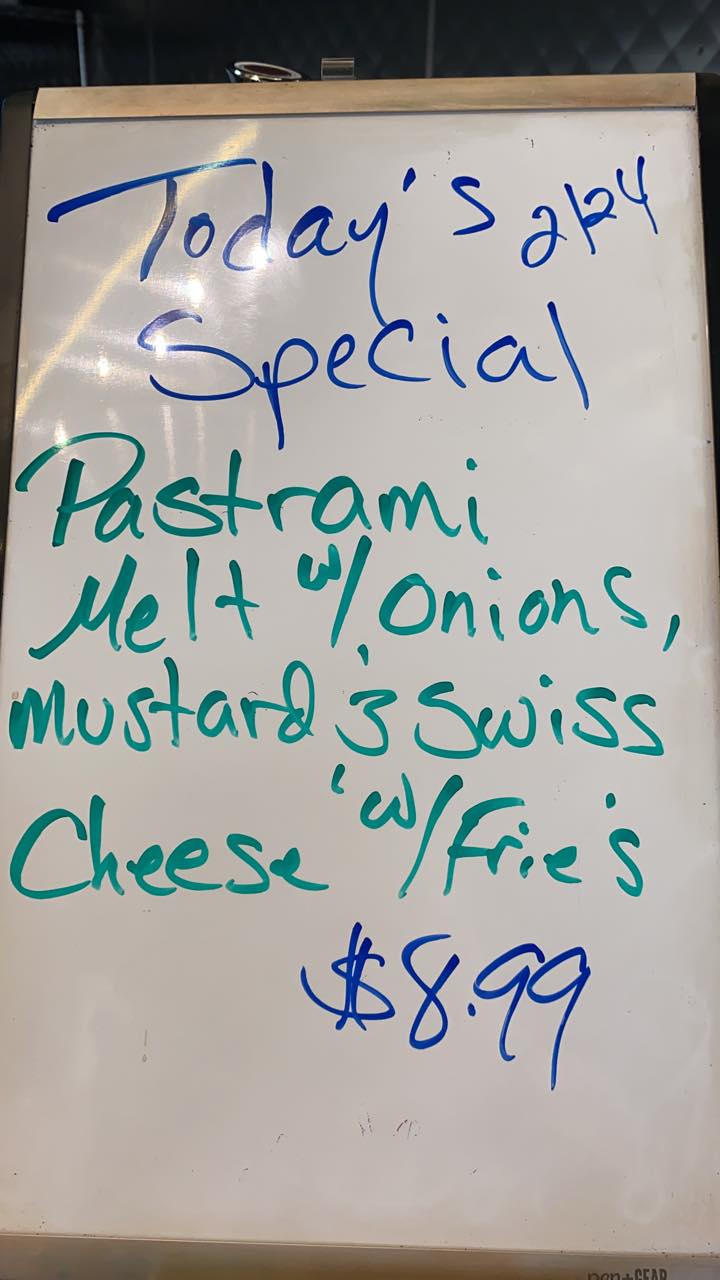 Today's 2/24
Special
Pastrami
Melt w/ Onions,
Mustard & Swiss
Cheese w/ Frie's
$8.99
pen+GEAR